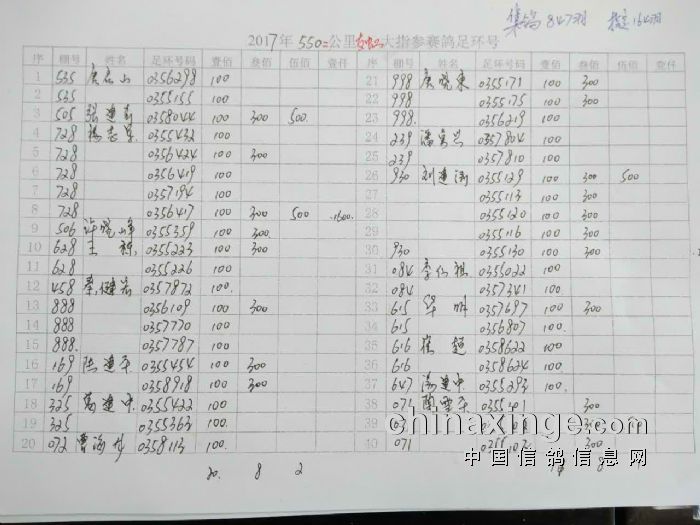 集鸽847羽 指定164羽
2017年550公里大指参赛鸽足环号
序 棚号 姓名 足环号码 壹佰 叁佰 伍佰 壹仟
1 535 0356298 100
2 535 0355155 100
3 505 张建 0358044 100 300 500
4 728 0355432 100
5 728 0356424 100 300
6 728 0356419 100
7 728 0357194 100
8 728 0356417 100 300 500 1000
9 506 许晓峰 0355359 100 300
10 628 王 0355223 100 300
11 628 0355226 100
12 458 蔡健 0357872 100
13 888 0356109 100 300
14 888 0357770 100
15 888 0357787 100
16 169 陆建平 0355454 100 300
17 169 0358918 100 300
18 325 葛建中 0355422 100
19 325 0355363 100
20 072 曹海 0358113 100
20 8 2
序 棚号 姓名 足环号码 壹佰 叁佰 伍佰 壹仟
21 998 唐晓东 0355171 100 300
22 998 0355175 100 300
23 998 0356219 100
24 239 潘 0357804 100
25 239 0357810 100
26 930 刘建 0355129 100 300 500
27 0355113 100 300
28 0355120 100 300
0355116 100 300
30 930 0355130 100 300
31 084 李 0355022 100
32 084 0357341 100
33 615 华明 0357697 100 300
34 615 0356807 100
35 616 崔超 0358622 100
36 616 0358624 100
37 647 汤建中 0355293 100
38 071 300
39 300
40 071 300
chinaxinge.com
中国信鸽信息网